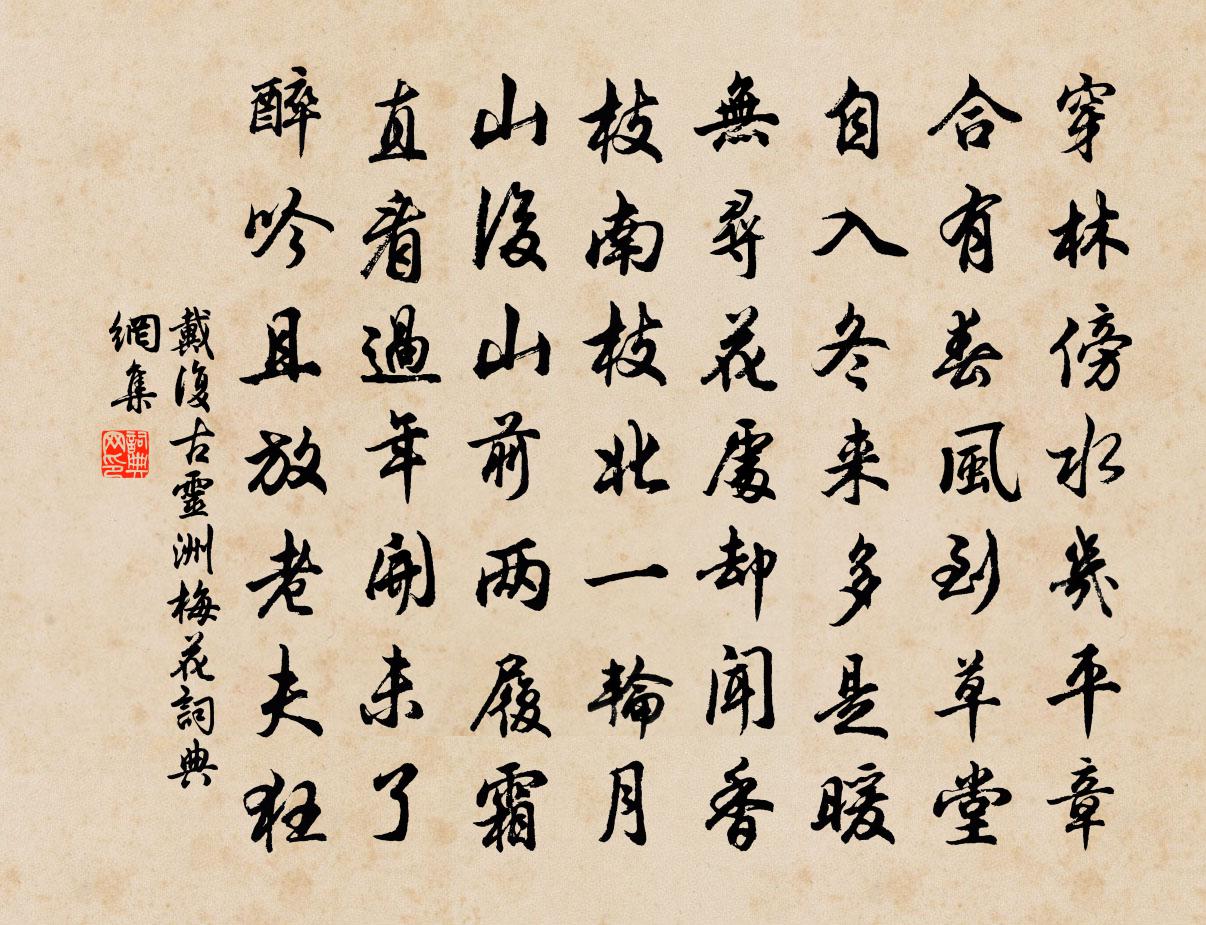 穿林傍水幾平章
合有春風到草堂
自入冬来多是暖
無尋花處却聞香
枝南枝北一輪月
山後山前两履霜
直看過年開未了
醉吟且放老夫狂
戴復古靈洲梅花詞典
網集
詞典
网印